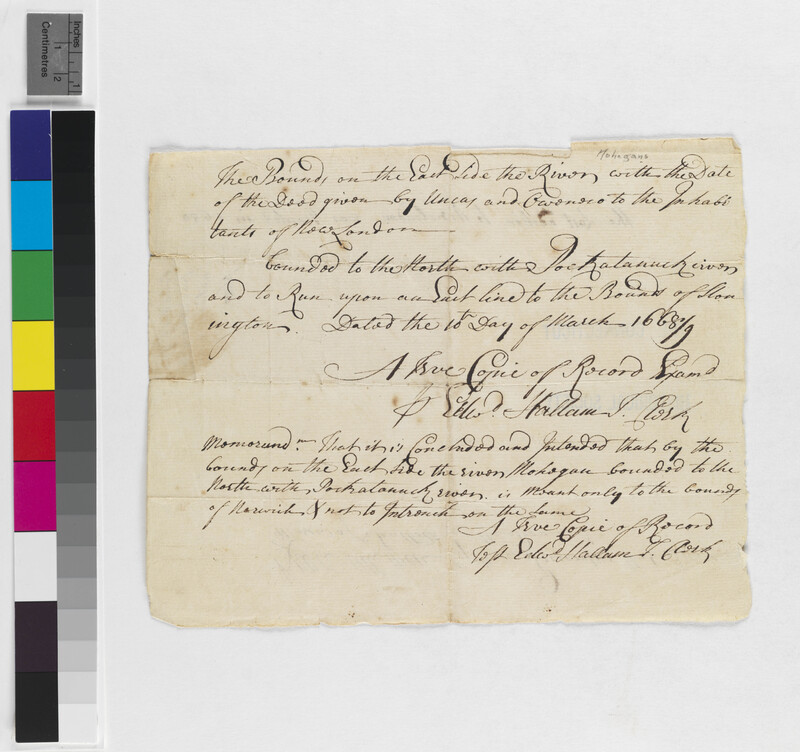 Inches
1
Centimetres
1
2
Mohegans
The Bounds on the East Side the River, with the Date
of the Deed given by Uncas and Oweneco to the Inhabi
tants of New London
bounded to the North with Pockatannuck river
and to Run upon an East line to the Bounds of Ston
ington. Dated the 10th Day of March 1668/9
A True Copie of Record Examd
Edwd. Hallam T. Clerk
Memorandm. That it is Concluded and Intended that by the
bounds on the East side the river Mohegan bounded to the
North with Pockatannuck river is Meant only to the bounds
of Norwich & not to Intrench on the same
A True Copie of Record
Test Edwd Hallam T. Clerk